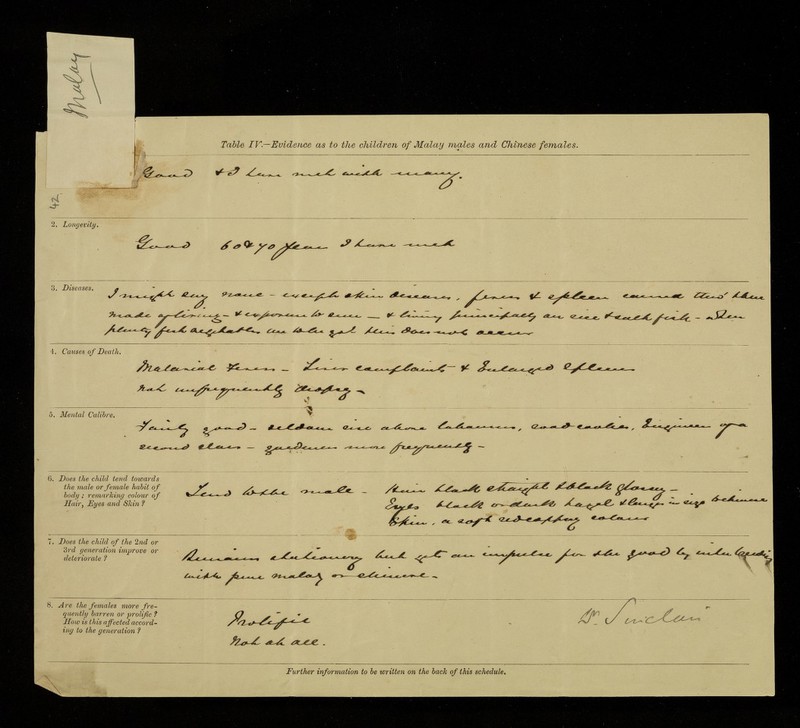 Malay
Table IV.—Evidence as to the children of Malay males and Chinese females.
Good & I have met with many.
42
2. Longevity.
Good 60 & 70 years I have met
3. Diseases.
I might say none - except skin diseases, fevers & spleen caused thro' their
mode of living - & exposure to sun — & living principally on rice & salt fish - when
plenty fresh vegetables are to be got this does not occur
4. Causes of Death.
Malarial Fevers - Liver complaints & Enlarged Spleens
Not unfrequently dropsy -
5. Mental Calibre.
Fairly good - seldom rise above labourers, Engineer of a
second class - gardeners more frequently -
6. Does the child tend towards
the male or female habit of
body; remarking colour of
Hair, Eyes and Skin?
Tend to the male - Hair black straight & black glossy -
Eyes black or dark hazel & larger in size to chinese
Skin, a soft colour
7. Does the child of the 2nd or
3rd generation improve or
deteriorate?
Remains stationary but get an impulse for the good by inter breeding
with pure malay or chinese -
8. Are the females more fre-
quently barren or prolific?
How is this affected accord-
ing to the generation?
Prolific
Not at all.
Dr. Sinclair
Further information to be written on the back of this schedule.